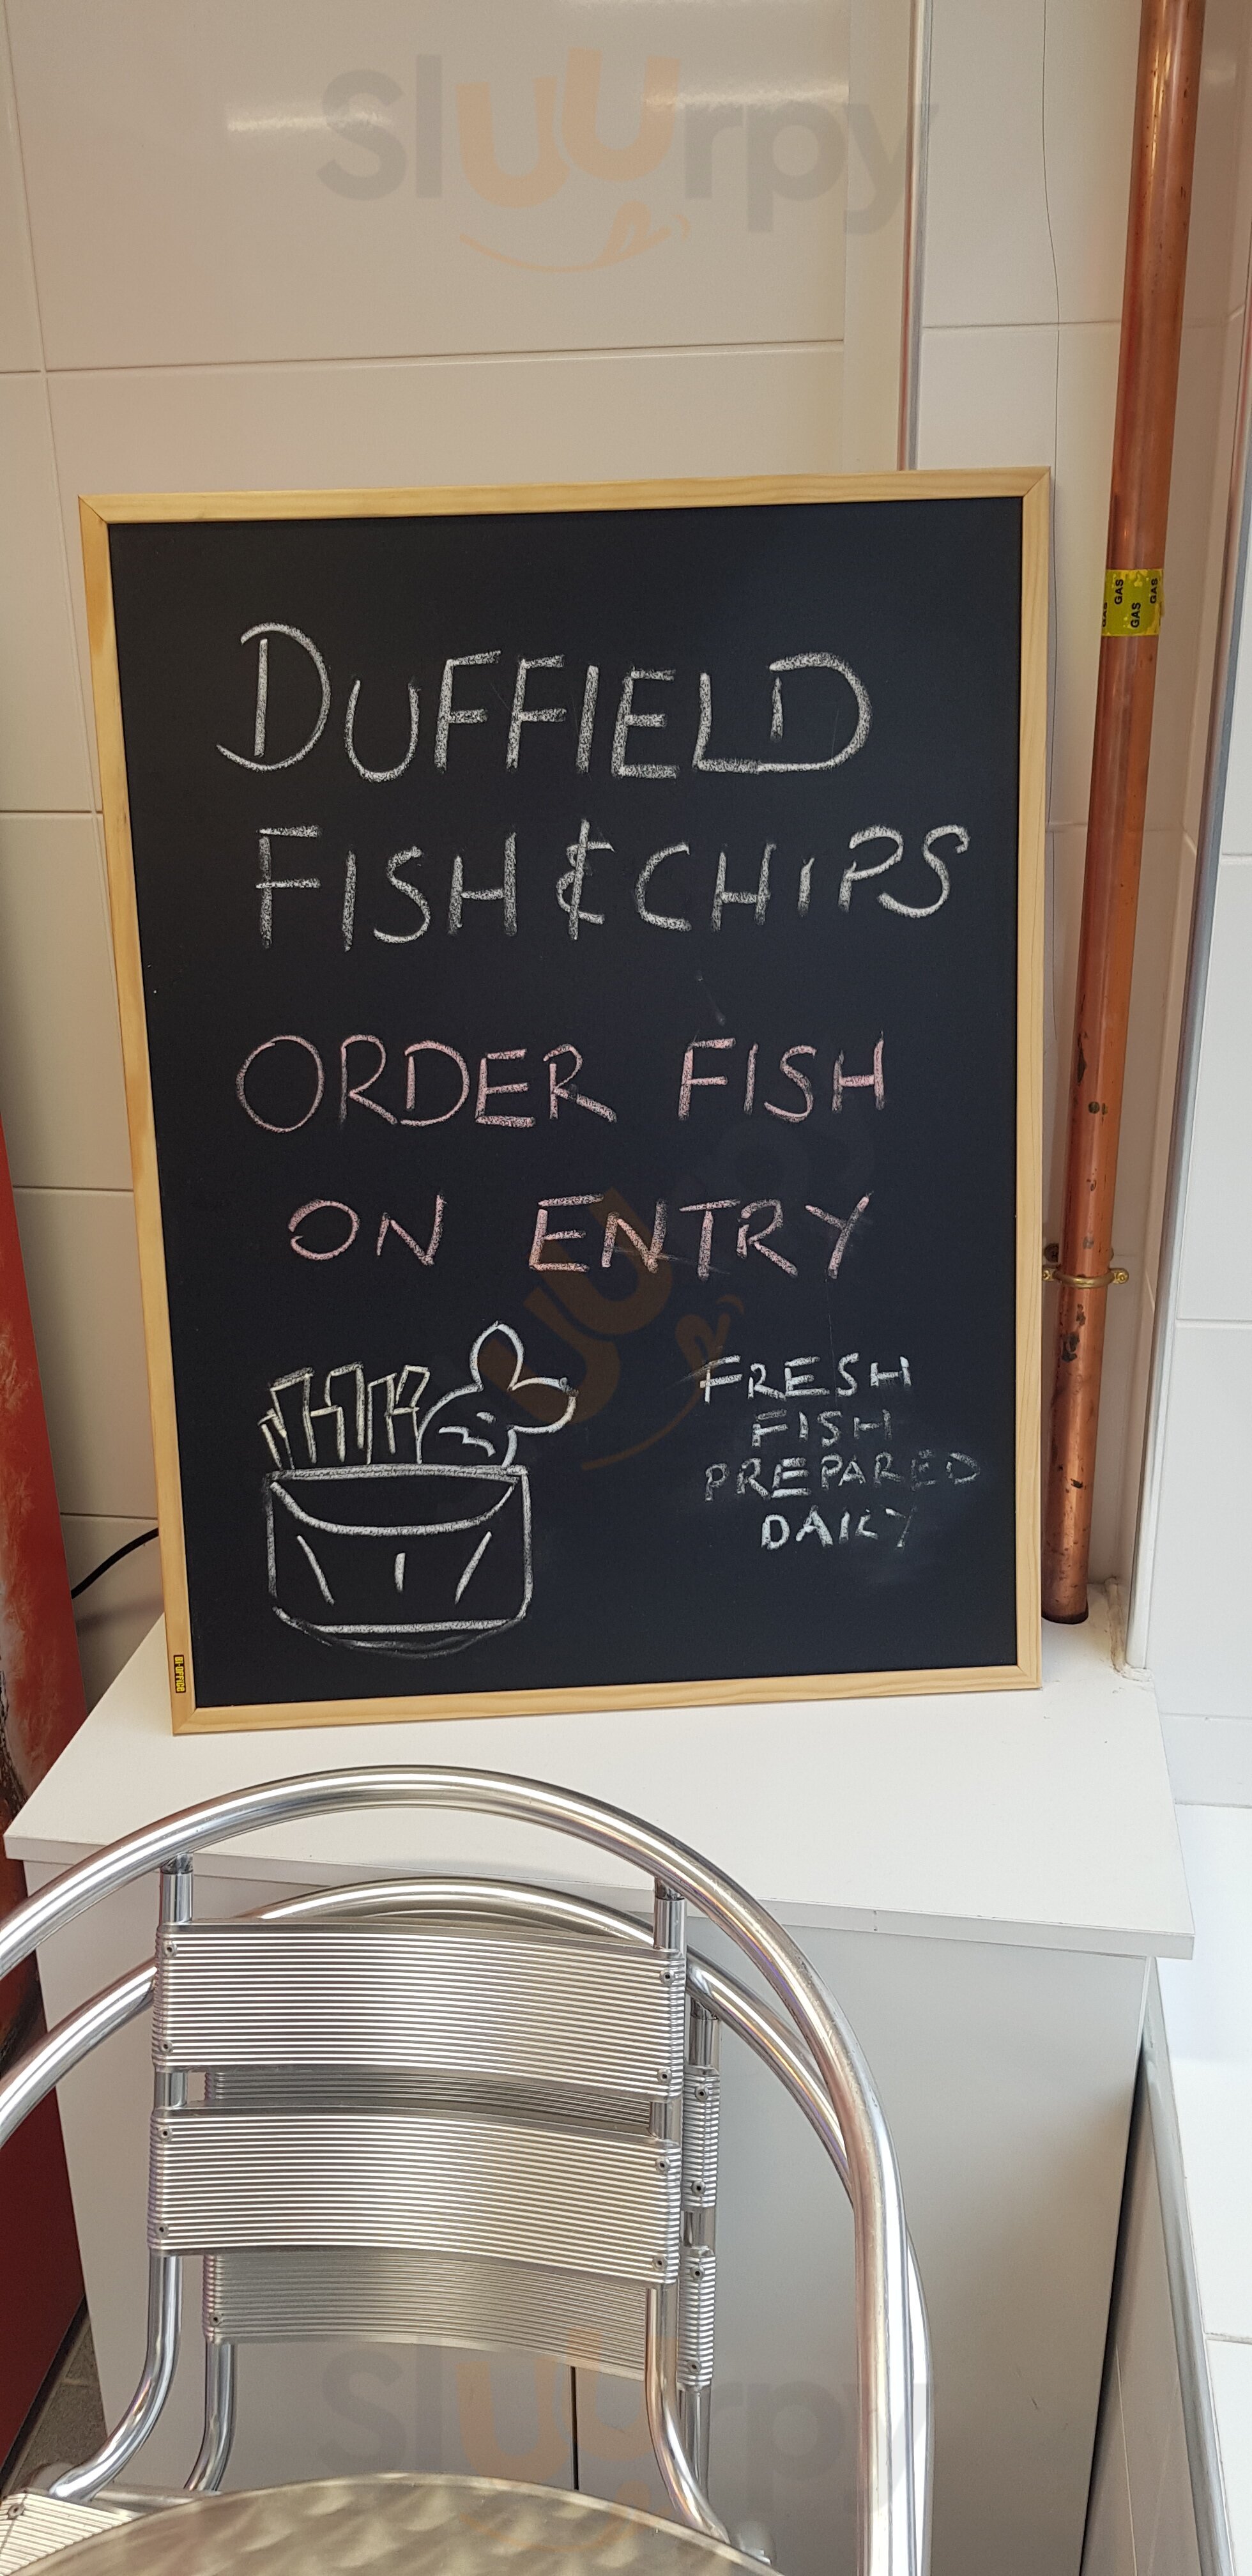 Sluurpy
GAS GAS GAS GAS
DUFFIELD
FISH & CHIPS
ORDER FISH
ON ENTRY
FRESH
FISH
PREPARED
DAILY
BI-OFFICE
Sluurpy